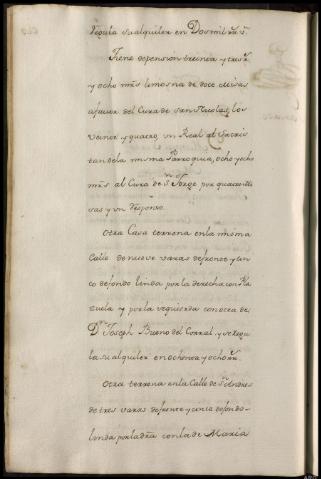 regula su alquiler en Dos mil rr.s
Tiene de pension treinta y tres rr.
y ocho mrs limosna de doce Misas
a favor del Cura de San Nicolas, los
veinte y quatro, un Real al Sacris
tan de la misma Parroquia, ocho y ocho
mrs al Cura de Sn Jorge por quatro Mi
sas y un Responso.
Otra Casa terrena en la misma
Calle de nueve varas de frente y
de fondo linda por la derecha con
zuela y por la yzquierda con otra de
Dn Joseph Bueno del Corral, y se regu
la su alquiler en ochenta y ocho rr.
Otra terrena en la Calle de Sn Andres
de tres varas de frente y cinco de fondo
linda por la dra con la de Maria